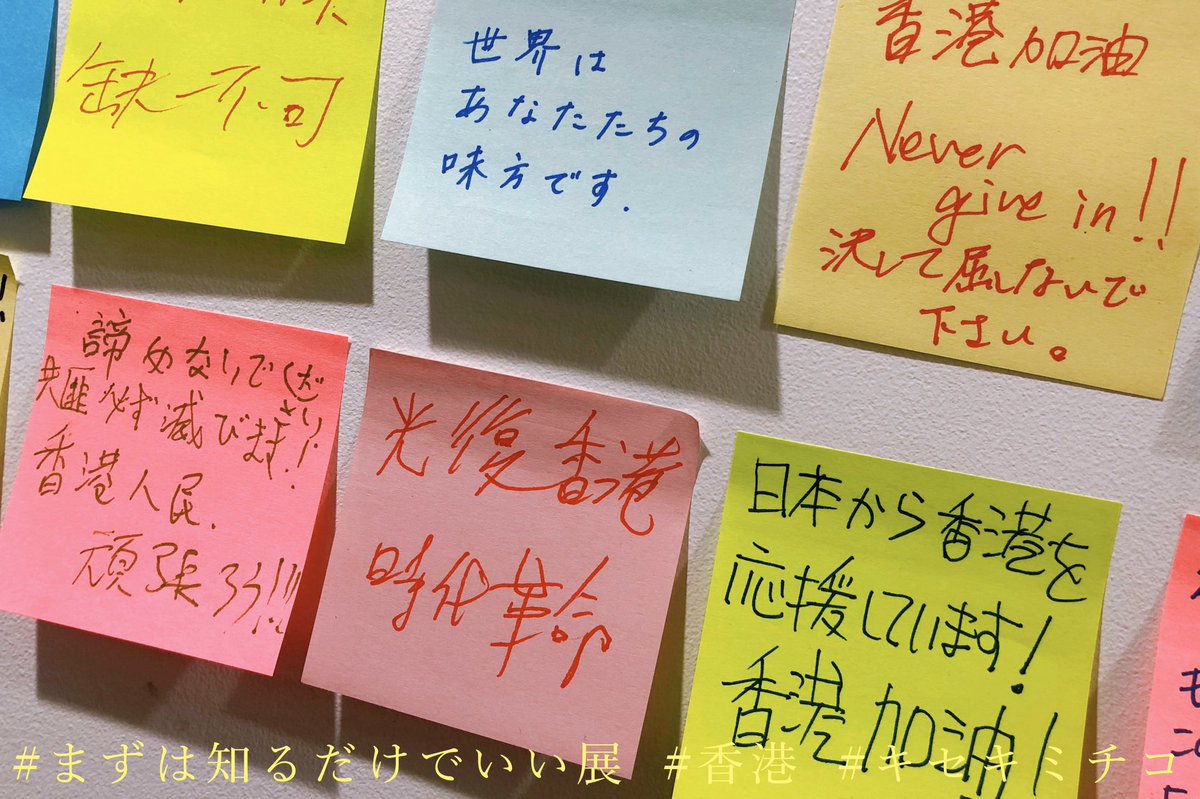 缺一不可
世界は
あなたたちの
味方です.
香港加油
Never
give in!!
決して屈しないで
下さい。
諦めないでください!
共匪必ず滅びます!
香港人民.
頑張ろう!!!
光復香港
時代革命
日本から香港を
応援しています!
香港加油!
#まずは知るだけでいい展 #香港 #キセキミチコ